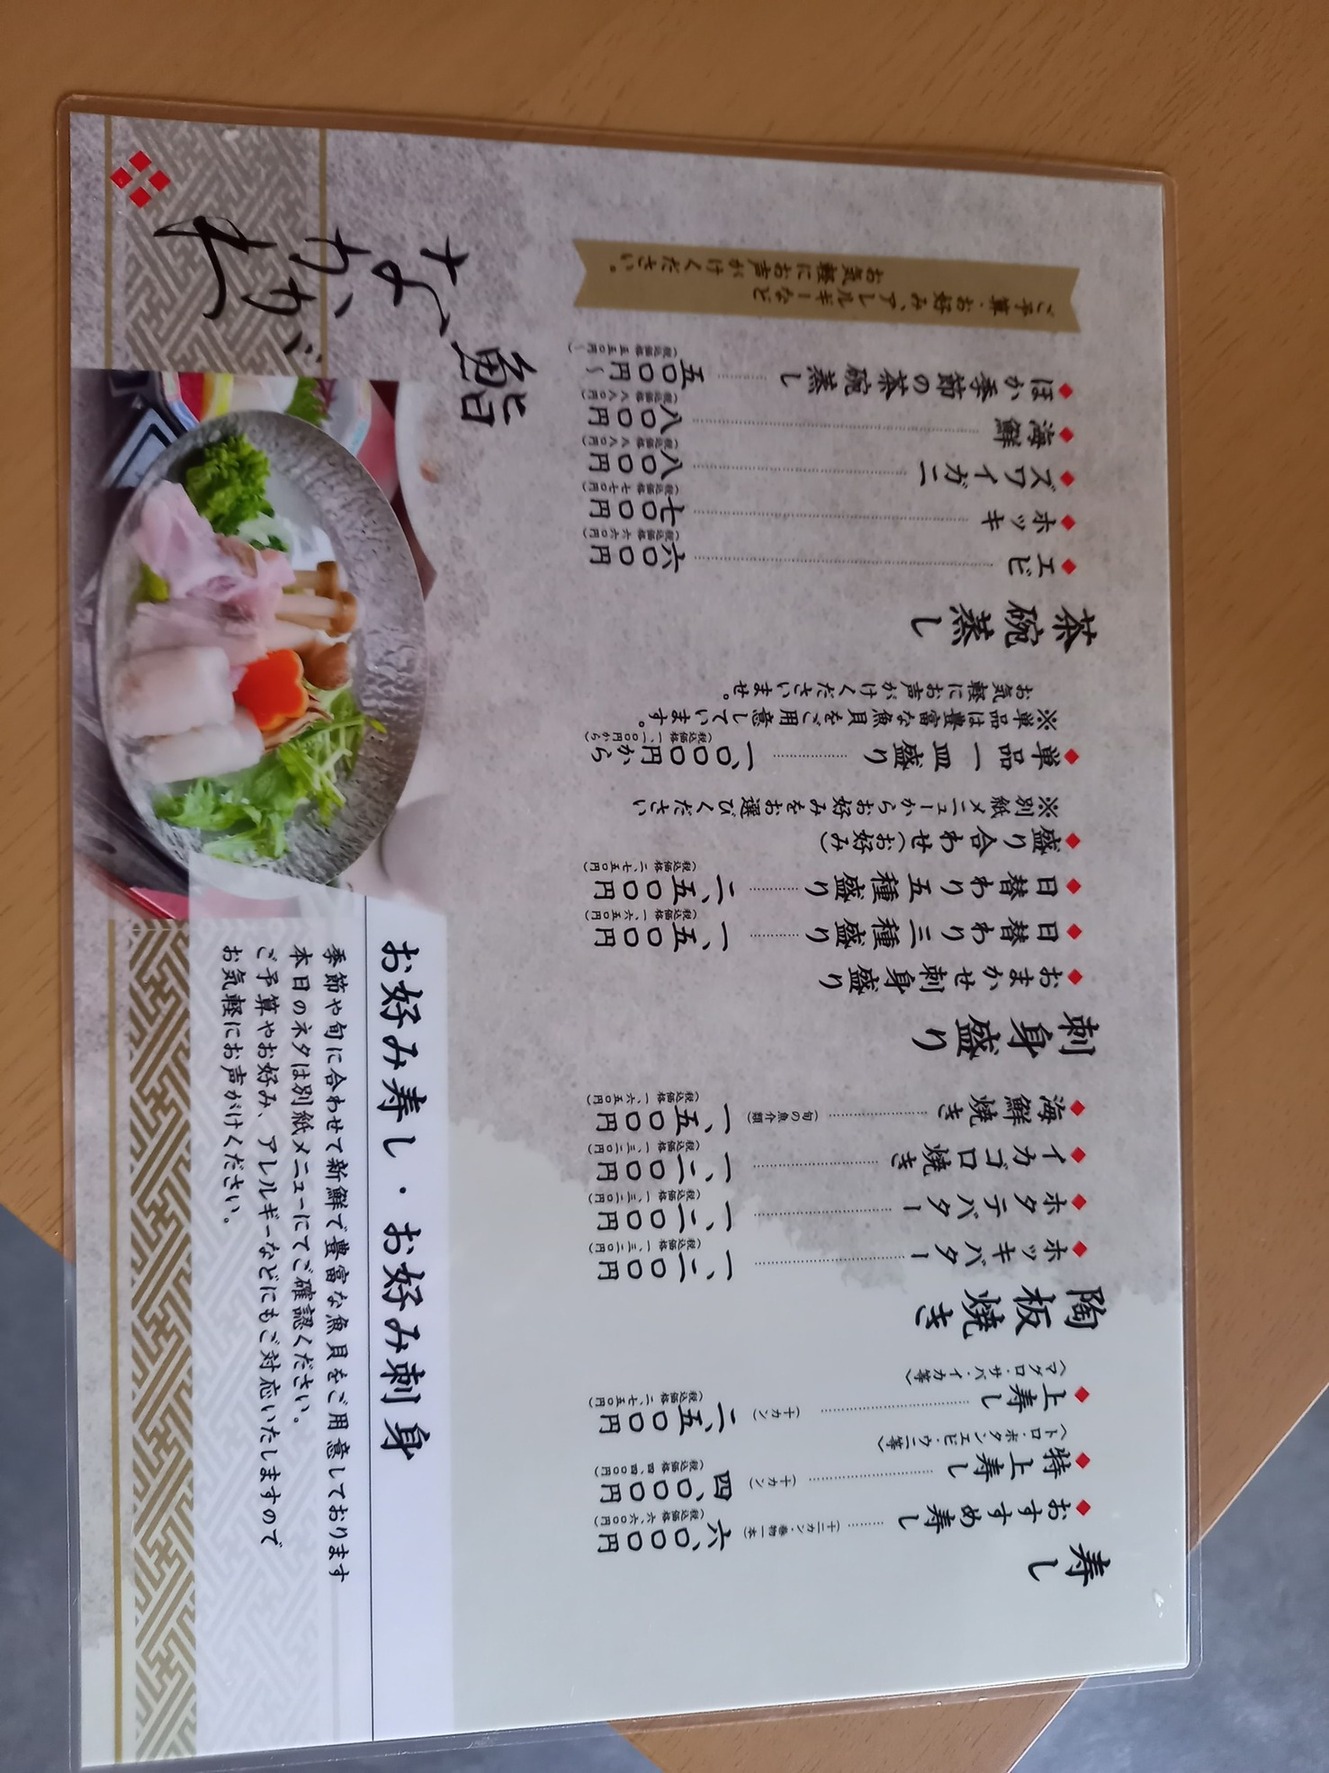 寿し
おすすめ寿し (十二カン・巻物一本) 六、〇〇〇円
(税込価格 六、六〇〇円)
特上寿し (十カン) 四、〇〇〇円
(税込価格 四、四〇〇円)
〈トロ・ボタンエビ・ウニ等〉
上寿し (十カン) 二、五〇〇円
(税込価格 二、七五〇円)
〈マグロ・サバ・イカ等〉
陶板焼き
ホッキバター 一、二〇〇円
(税込価格 一、三二〇円)
ホタテバター 一、二〇〇円
(税込価格 一、三二〇円)
イカゴロ焼き 一、二〇〇円
(税込価格 一、三二〇円)
海鮮焼き (旬の魚介類) 一、五〇〇円
(税込価格 一、六五〇円)
刺身盛り
おまかせ刺身盛り
日替わり三種盛り 一、五〇〇円
(税込価格 一、六五〇円)
日替わり五種盛り 二、五〇〇円
(税込価格 二、七五〇円)
盛り合わせ(お好み)
※別紙メニューからお好みをお選びください
単品一皿盛り 一、〇〇〇円から
(税込価格 一、一〇〇円から)
※単品は豊富な魚貝をご用意しています。
お気軽にお声がけくださいませ。
茶碗蒸し
エビ 六〇〇円
(税込価格 六六〇円)
ホッキ 七〇〇円
(税込価格 七七〇円)
ズワイガニ 八〇〇円
(税込価格 八八〇円)
海鮮 八〇〇円
(税込価格 八八〇円)
ほか季節の茶碗蒸し 五〇〇円〜
(税込価格 五五〇円〜)
ご予算・お好み、アレルギーなど
お気軽にお声がけください。
鮨 なかがわ
お好み寿し・お好み刺身
季節や旬に合わせて新鮮で豊富な魚貝をご用意しております
本日のネタは別紙メニューにてご確認ください。
ご予算やお好み、アレルギーなどにもご対応いたしますので
お気軽にお声がけください。